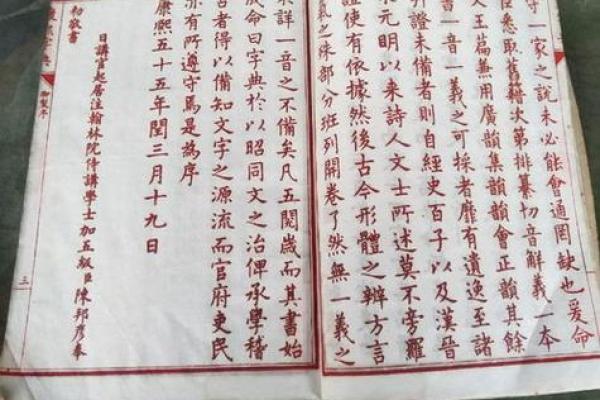 守一家之說未必能會通罔缺也爰命
臣悉取舊籍次第排纂切音解義一本
文玉篇兼用廣韻集韻韻會正韻其餘
書一音一義之可採者靡有遺逸至諸
引證未備者則自經史百子以及漢晉
元明以來詩人文士所述莫不旁羅
證使有依據然後古今形體之辨方言
氣之殊部分班列開卷了然無一義之
詳一音之不備矣凡五閱歲而其書始
成命曰字典於以昭同文之治俾承學稽
古者得以備知文字之源流而官府吏民
亦有所遵守焉是為序
康熙五十五年閏三月十九日
日講官起居注翰林院侍講學士加五級臣陳邦彥奉
勑敬書
三